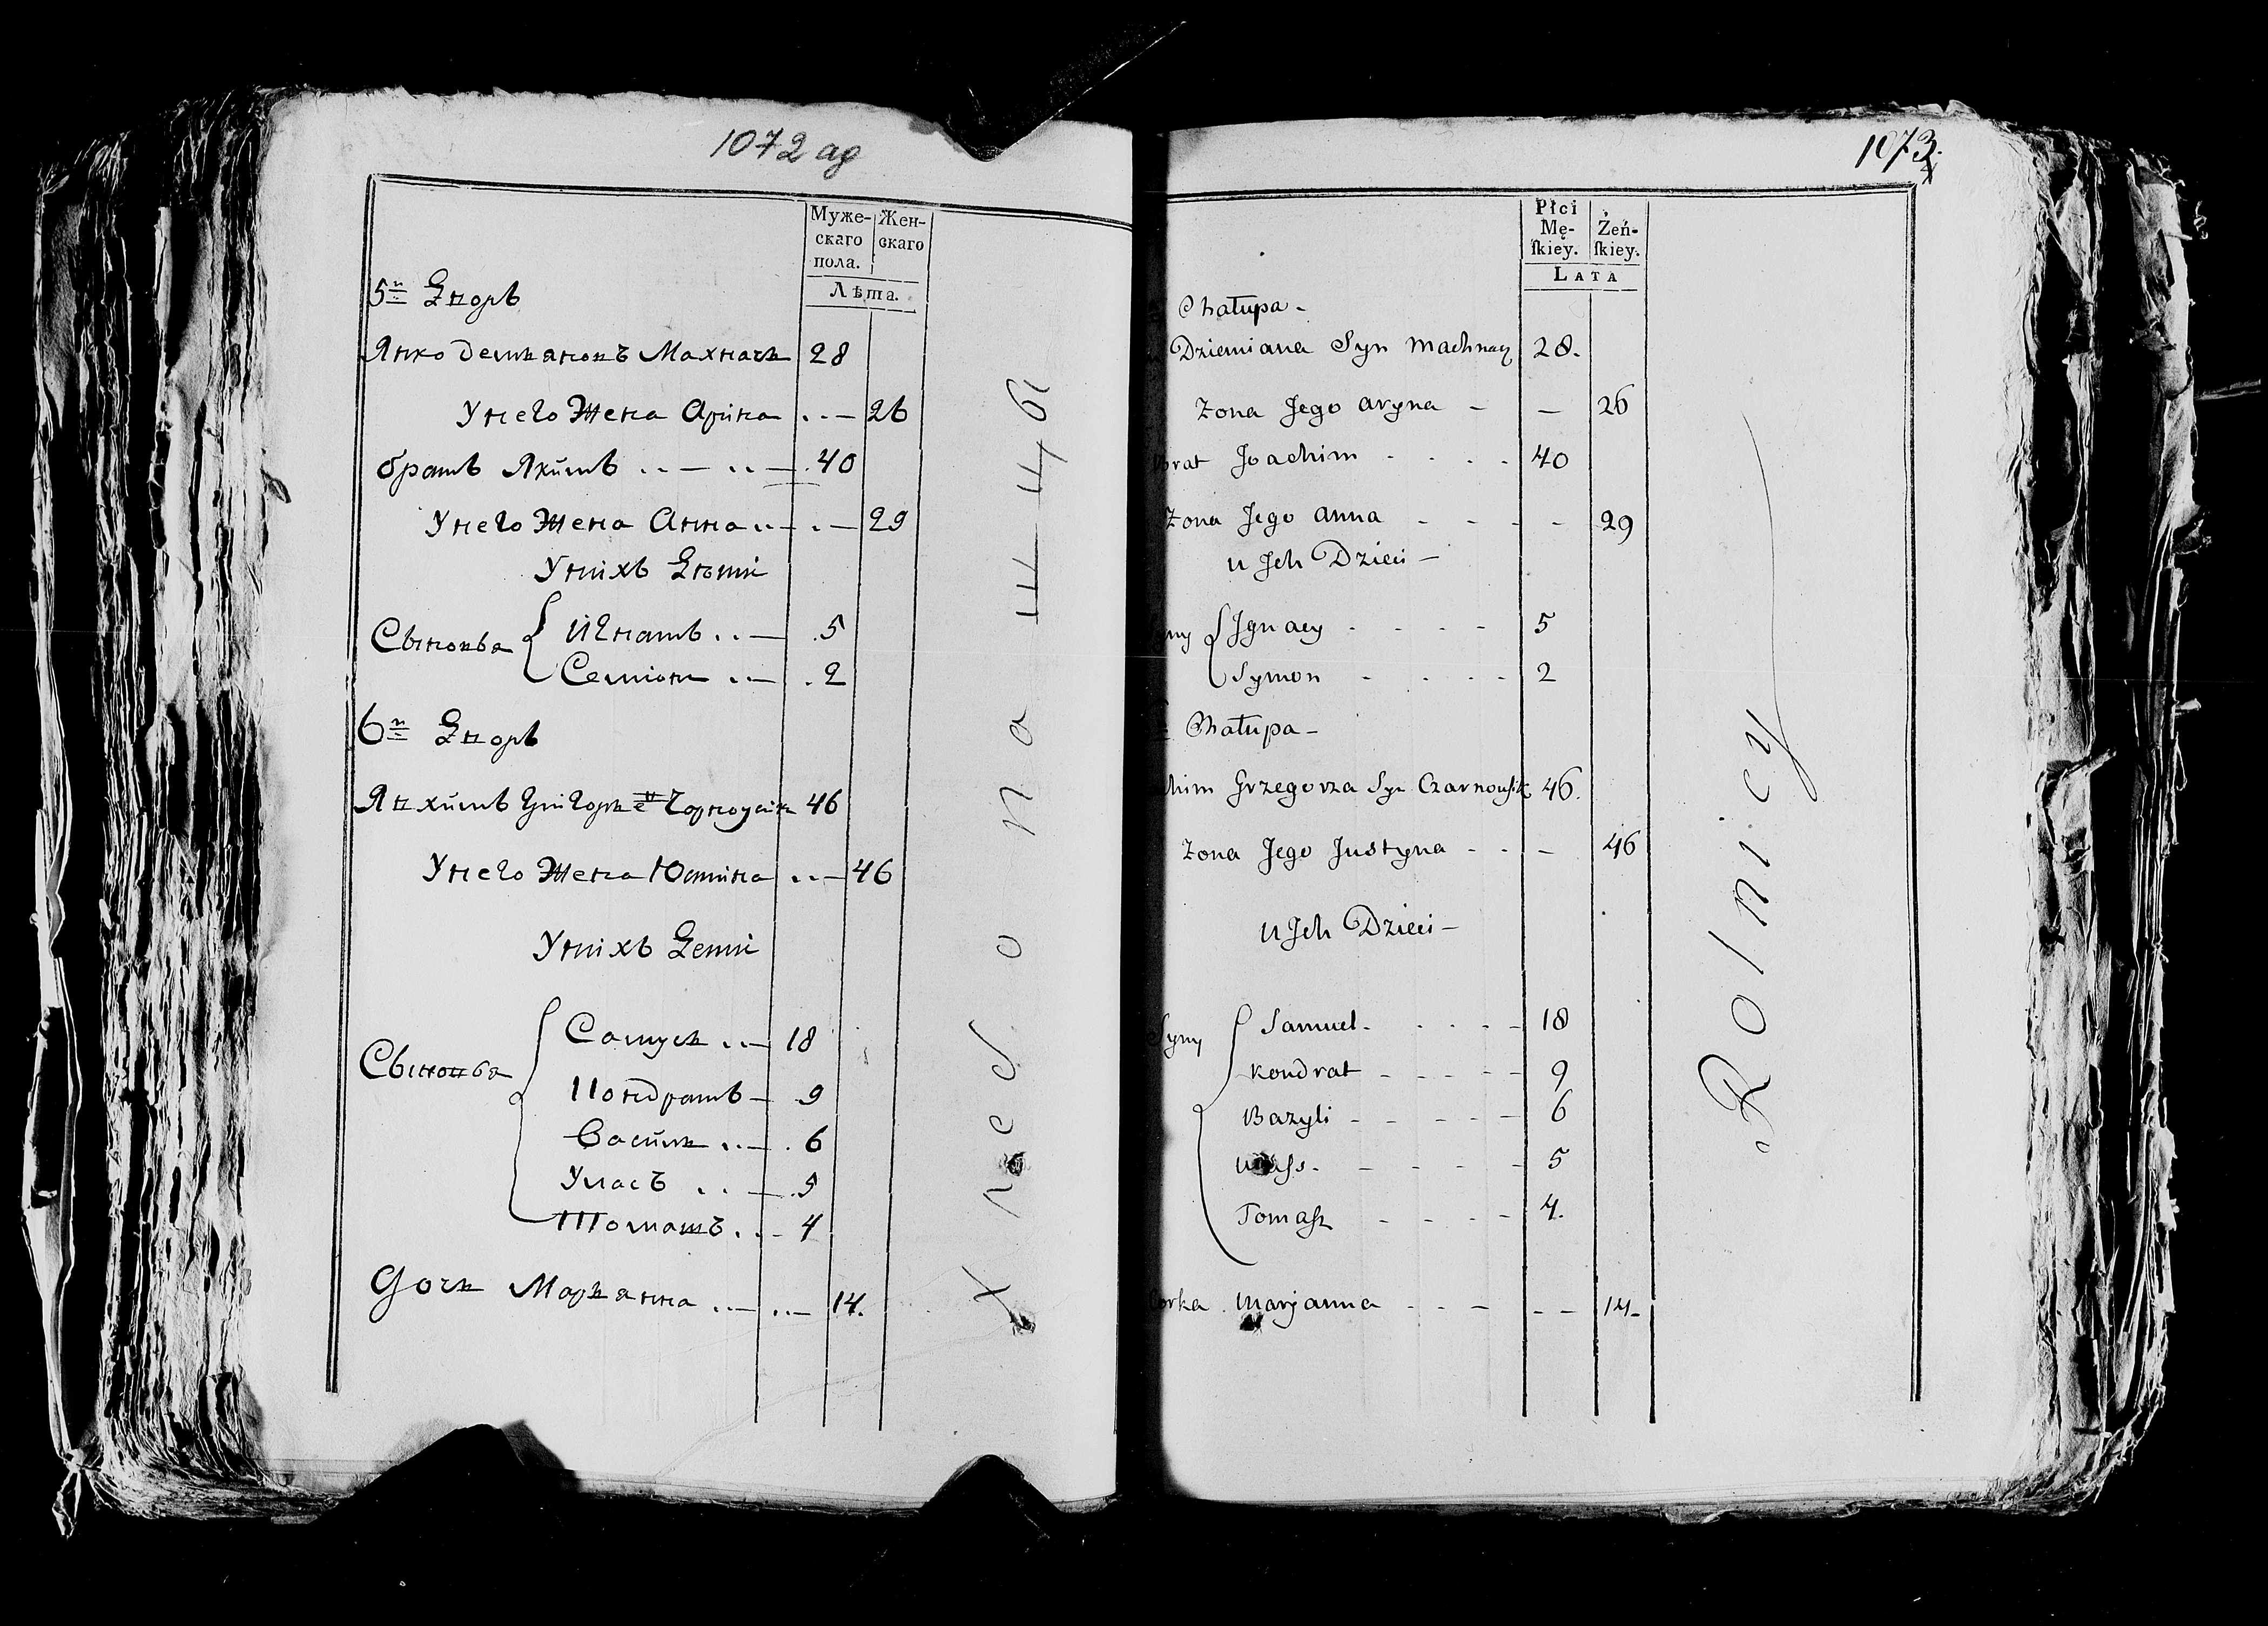 1072 ag
Муже-
скаго
пола.
Жен-
скаго
Лѣта.
5й Дворъ
Янко Демьяновъ Махначъ 28
У него Жена Арина .. — 26
братъ Якимъ .. — .. — 40
У него Жена Анна .. — .. — 29
У нихъ Дѣти
Сыновья { Игнатъ .. — 5
Семіон .. — 2
6й Дворъ
Яхимъ Григорье Чорноусик 46
У него Жена Юстина .. — 46
У нихъ Дети
Сыновья { Самуси .. — 18
Кондратъ — 9
Васили .. — 6
Уласъ .. — 5
Томашъ .. - 4
Дочь Марьянна .. — .. — 14.
Хлебопашцы
1073.
Płci
Mę-
ſkiey.
Żeń-
ſkiey.
LATA
Chałupa -
Dziemiana Syn Machnacz 28.
Zona Jego Aryna - — 26
brat Joachim - - - - 40
Zona Jego Anna - - - - 29
u Jch Dzieci —
{ Jgnacy - - - - 5
Symon - - - - 2
Chałupa -
Grzegorza Syn Czarnousik 46.
Zona Jego Justyna - - - 46
u Jch Dzieci —
Syny { Samuel - - - - 18
Kondrat - - - - 9
Bazyli - - - - 6
- - - - 5
Tomasz - - - - 4.
Corka Marjanna - - - - - 14-
Rolnicy